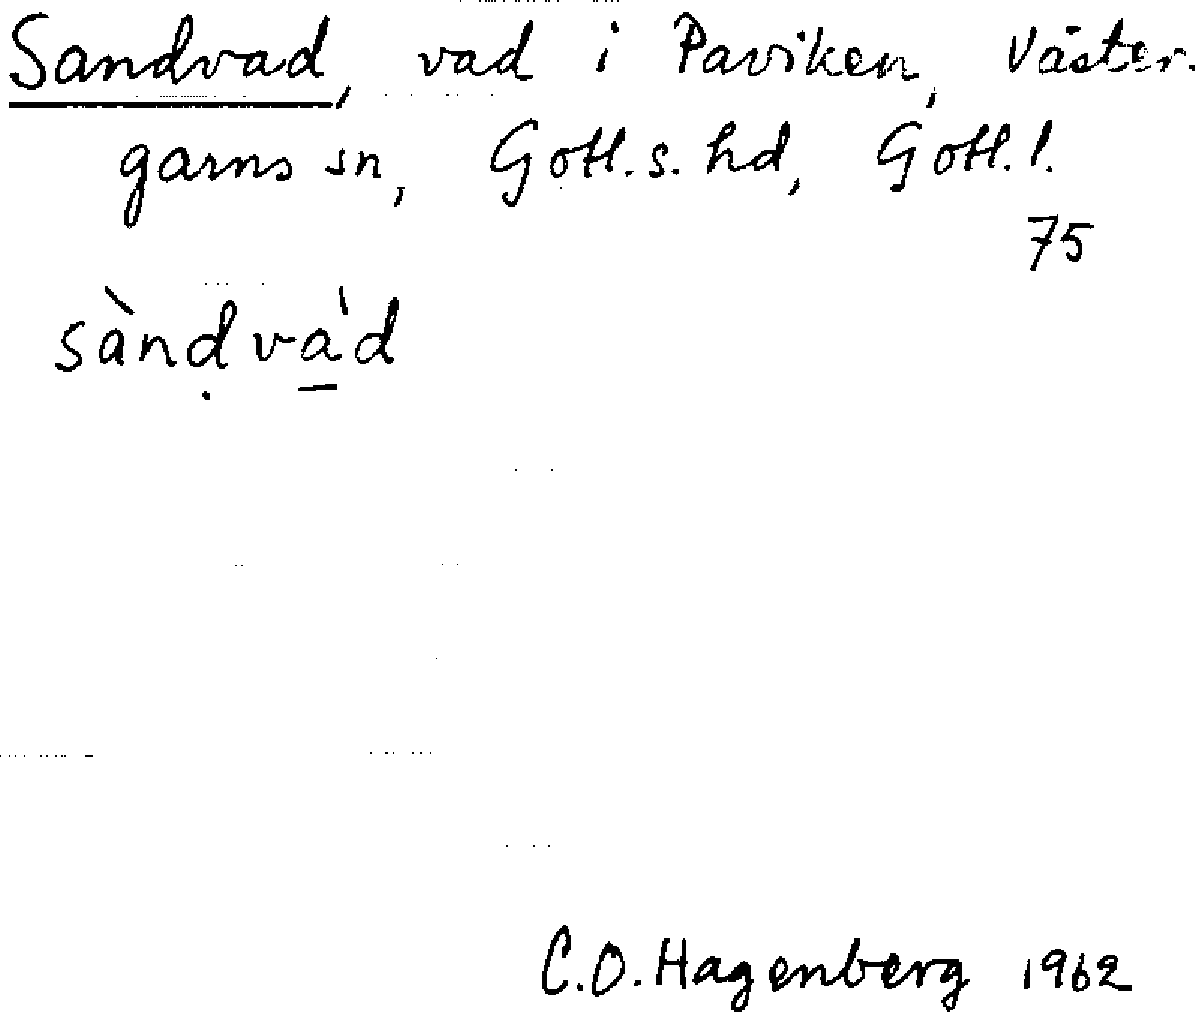 Sandvad, vad i Paviken, Väster-
garns sn, Gotl. s. hd, Gotl. l.
75
sànḍva̱'d
C.O. Hagenberg 1962